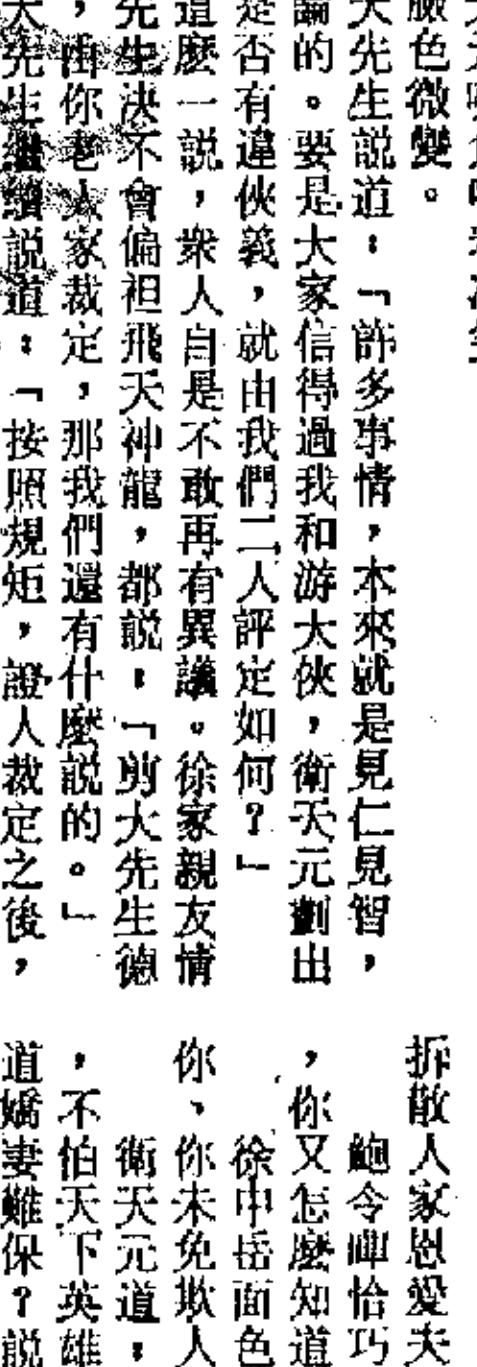 臉色微變。
大先生說道：「許多事情，本來就是見仁見智，
論的。要是大家信得過我和游大俠，衞天元劃出
是否有違俠義，就由我們二人評定如何？」
這麼一說，衆人自是不敢再有異議。徐家親友情
先生決不會偏袒飛天神龍，都說：「剪大先生德
，由你老人家裁定，那我們還有什麼說的。」
大先生繼續說道：「按照規矩，證人裁定之後，
拆散人家恩愛夫
鮑令暉恰巧
，你又怎麼知道
徐中岳面色
你、你未免欺人
衞天元道：
，不怕天下英雄
道嬌妻難保？說